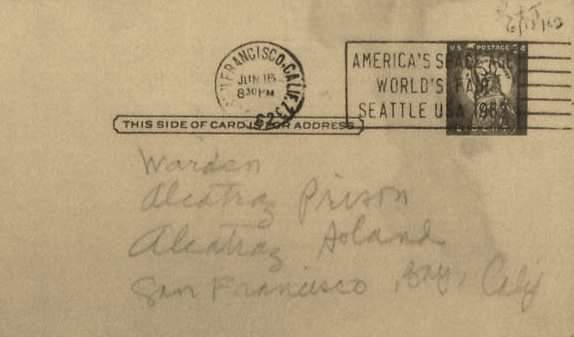 SAN FRANCISCO, CALIF.
JUN 18
8 30 PM
1962
AMERICA'S SPACE AGE
WORLD'S FAIR
SEATTLE USA 1962
U.S. POSTAGE
THIS SIDE OF CARD IS FOR ADDRESS
Warden
Alcatraz Prison
Alcatraz Island
San Francisco, Bay, Calif